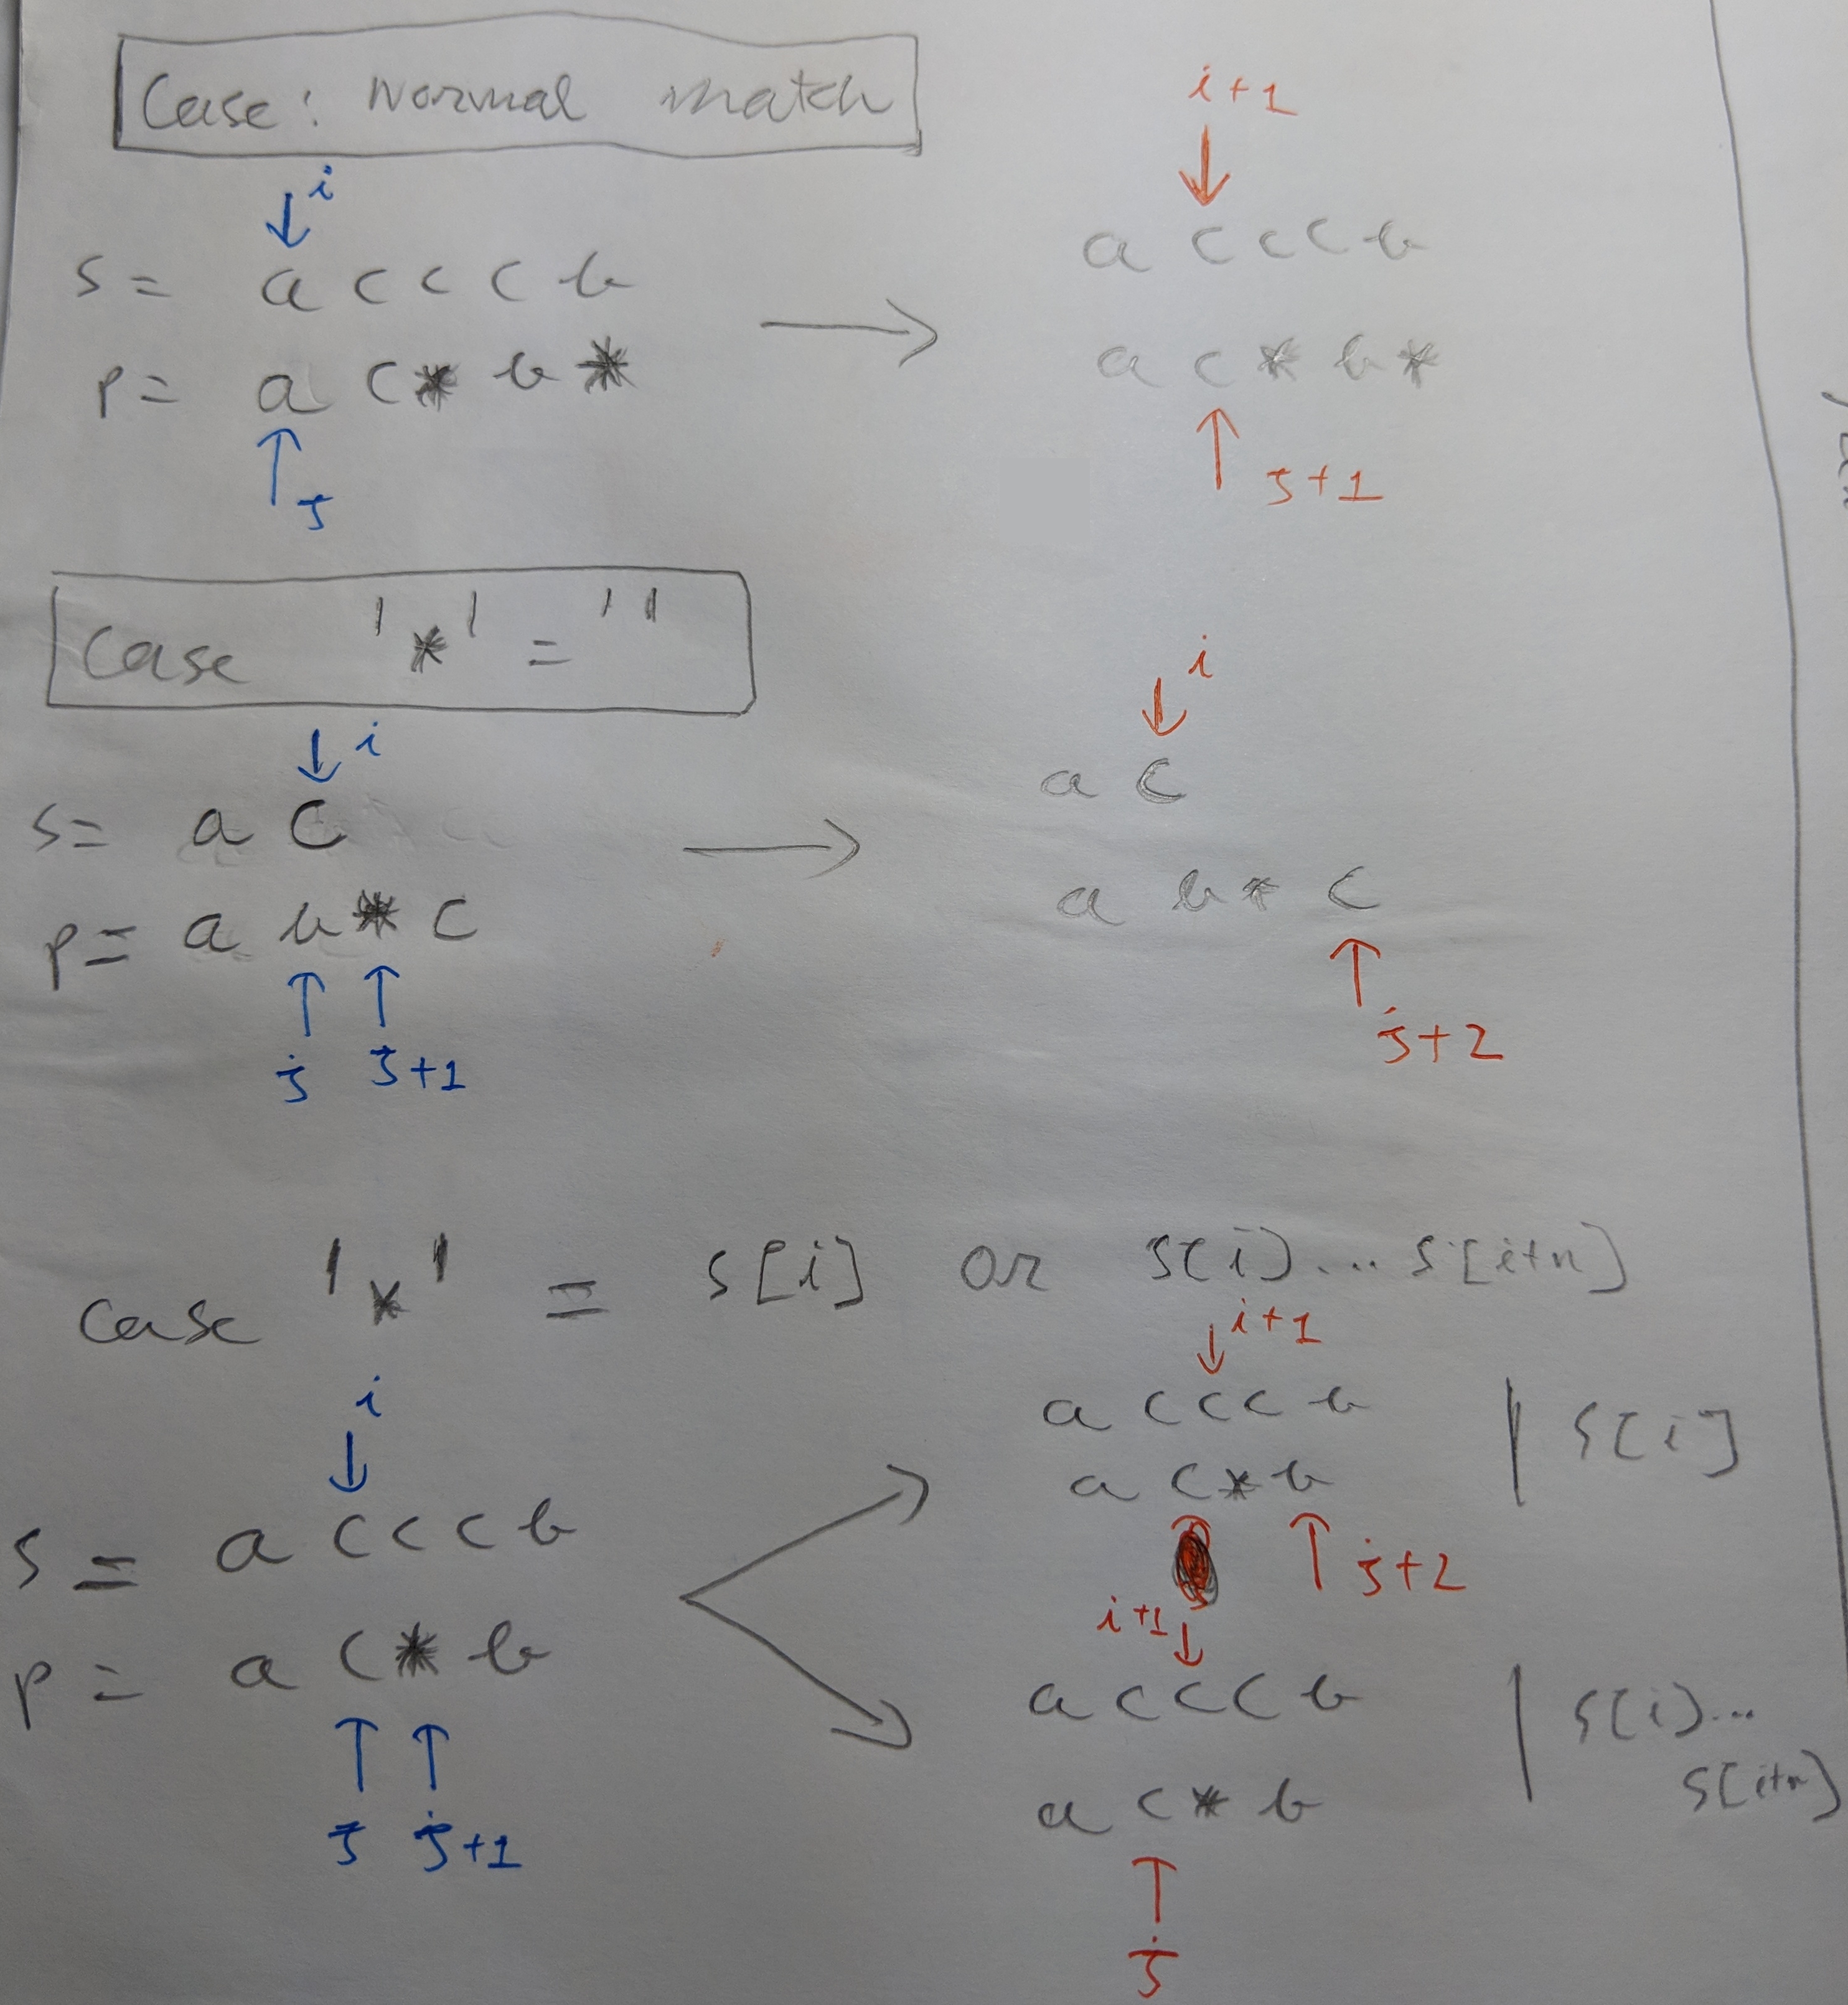 Case: Normal match
i
s= a c c c b
p= a c * b *
j
i+1
a c c c b
a c * b *
j+1
Case '*' = ''
i
s= a c
p= a b * c
j j+1
i
a c
a b * c
j+2
case '*' = s[i] or s[i]... s[i+n]
i
s = a c c c b
p = a c * b
j j+1
i+1
a c c c b | s[i]
a c * b
j+2
i+1
a c c c b | s[i]...
s[i+n]
a c * b
j